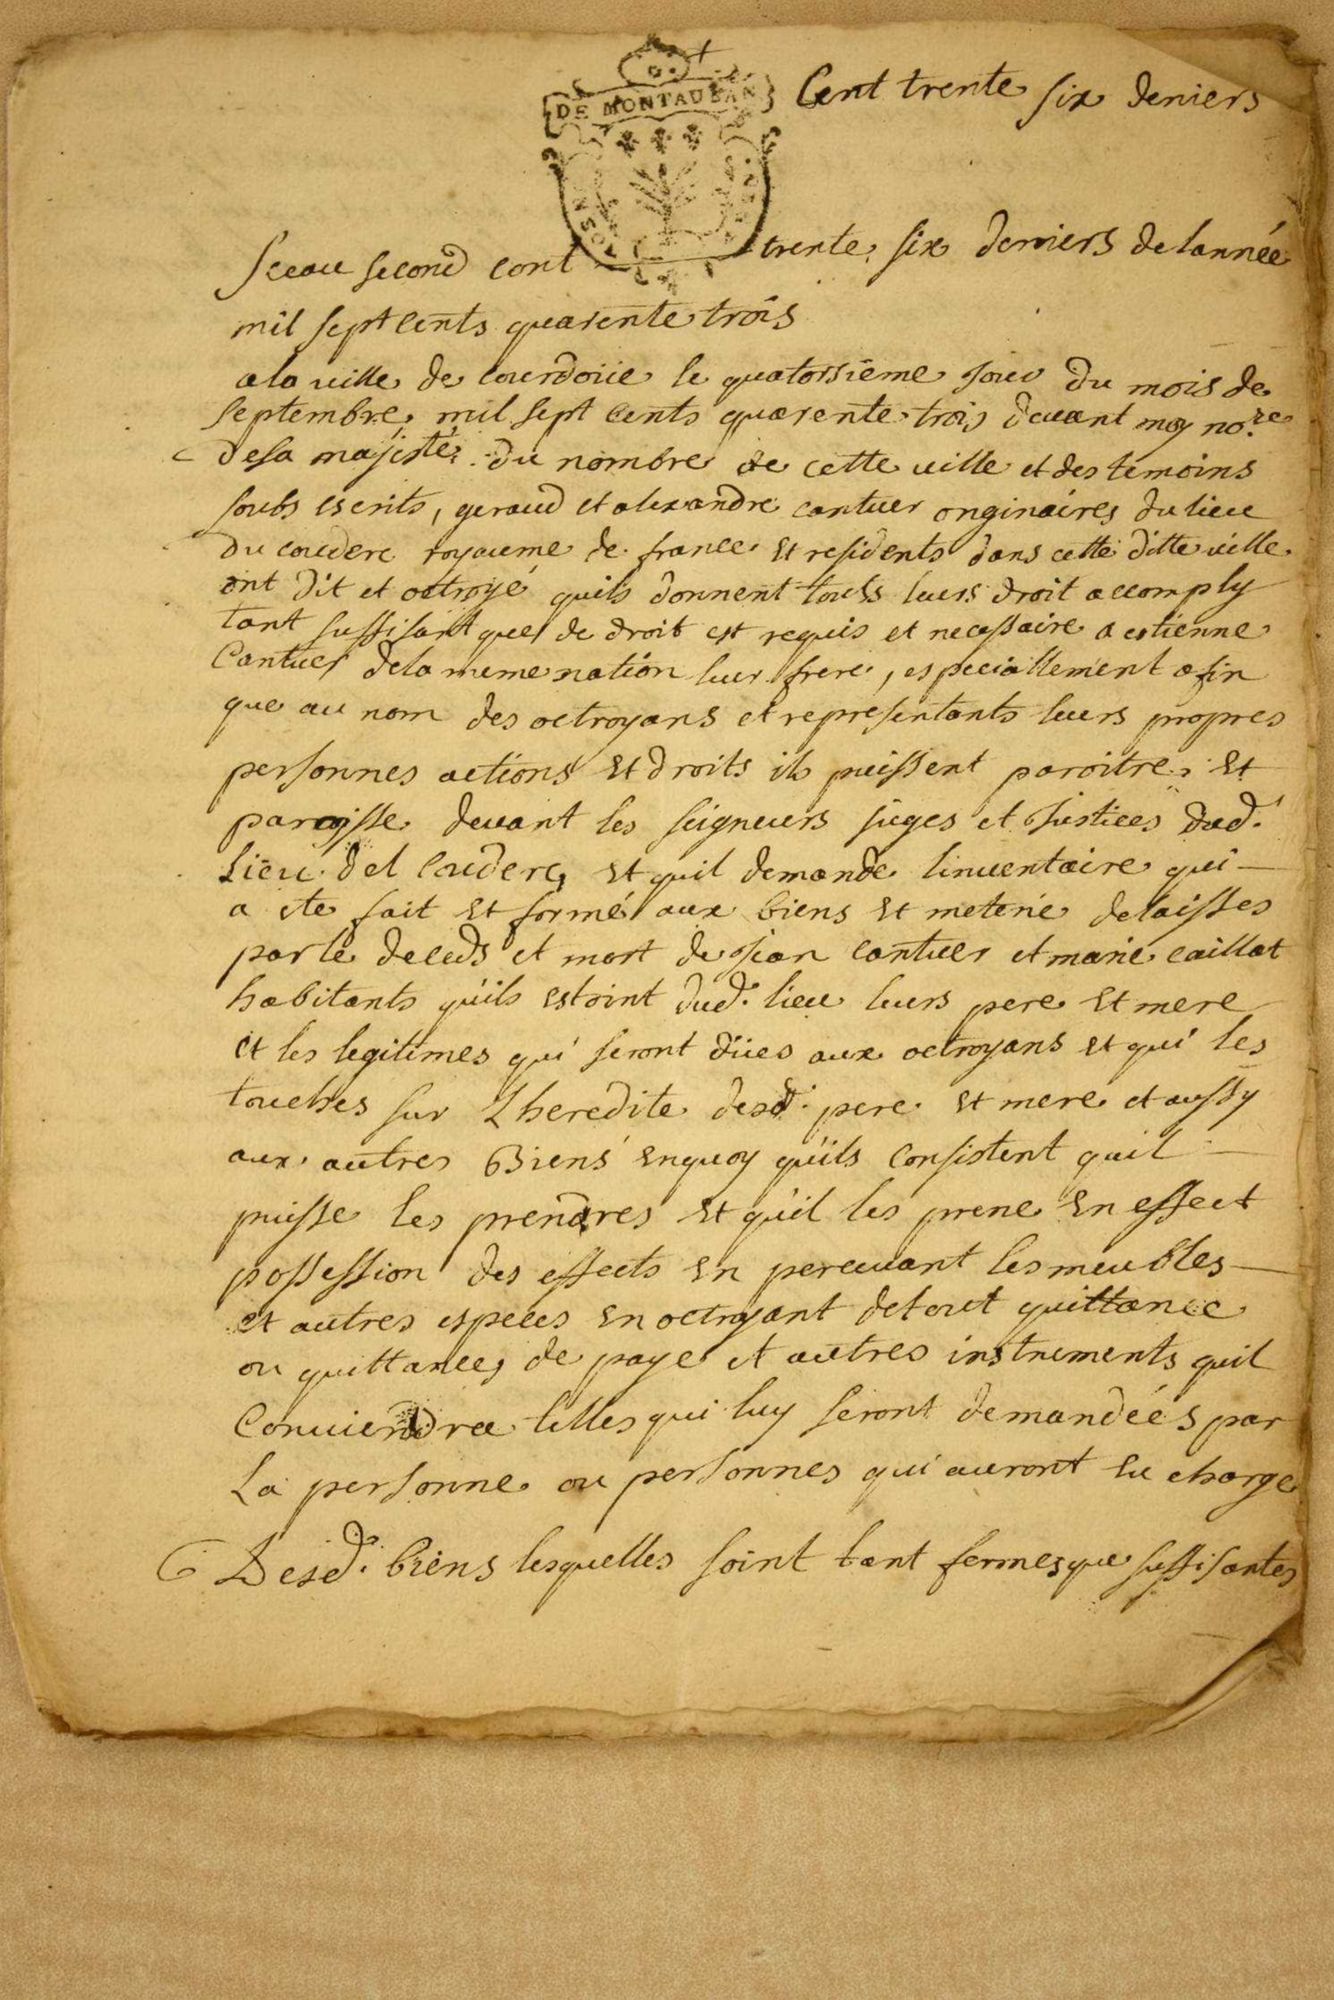 DE MONTAUBAN
Cent trente six deniers
Sceau second cent trente six deniers de lannée
mil sept cents quarente trois
a la ville de Courdoüe le quatorsieme jour du mois de
septembre mil sept cents quarente trois devant moy no.re
de sa majesté du nombre de cette ville et des temoins
soubs escrits, geraud et alexandre cantuer originaires du lieu
du couderc royaume de france et residents dans cette ditte ville
ont dit et octroyé quils donnent touts leurs droit accomply
tant suffisant que de droit est requis et necessaire a estienne
Cantuer dela meme nation leur frere, especiallement afin
que au nom des octroyans et representants leurs propres
personnes actions et droits ils puissent paroitre et
paroisse devant les seigneurs juges et justices dud.
Lieu del Couderc, et quil demande linventaire qui
a ete fait et formé aux biens et meterie delaisses
par le deceds et mort de jean cantuer et marie caillat
habitants quils estoint dud. lieu leurs pere et mere
et les legitimes qui seront düees aux octroyans et qui les
touches sur Lheredite desd. pere et mere et aussy
aux autres Biens enquoy quils consistent quil
puisse les prendres et quil les prene en effect
possession des effects en percevant les meubles
et autres especes en octroyant de tout quittance
ou quittances de paye et autres instruments quil
Conviendra telles qui luy seront demandées par
La personne ou personnes qui auront eu charge
Desd. biens lesquelles soint tant fermes que suffisantes